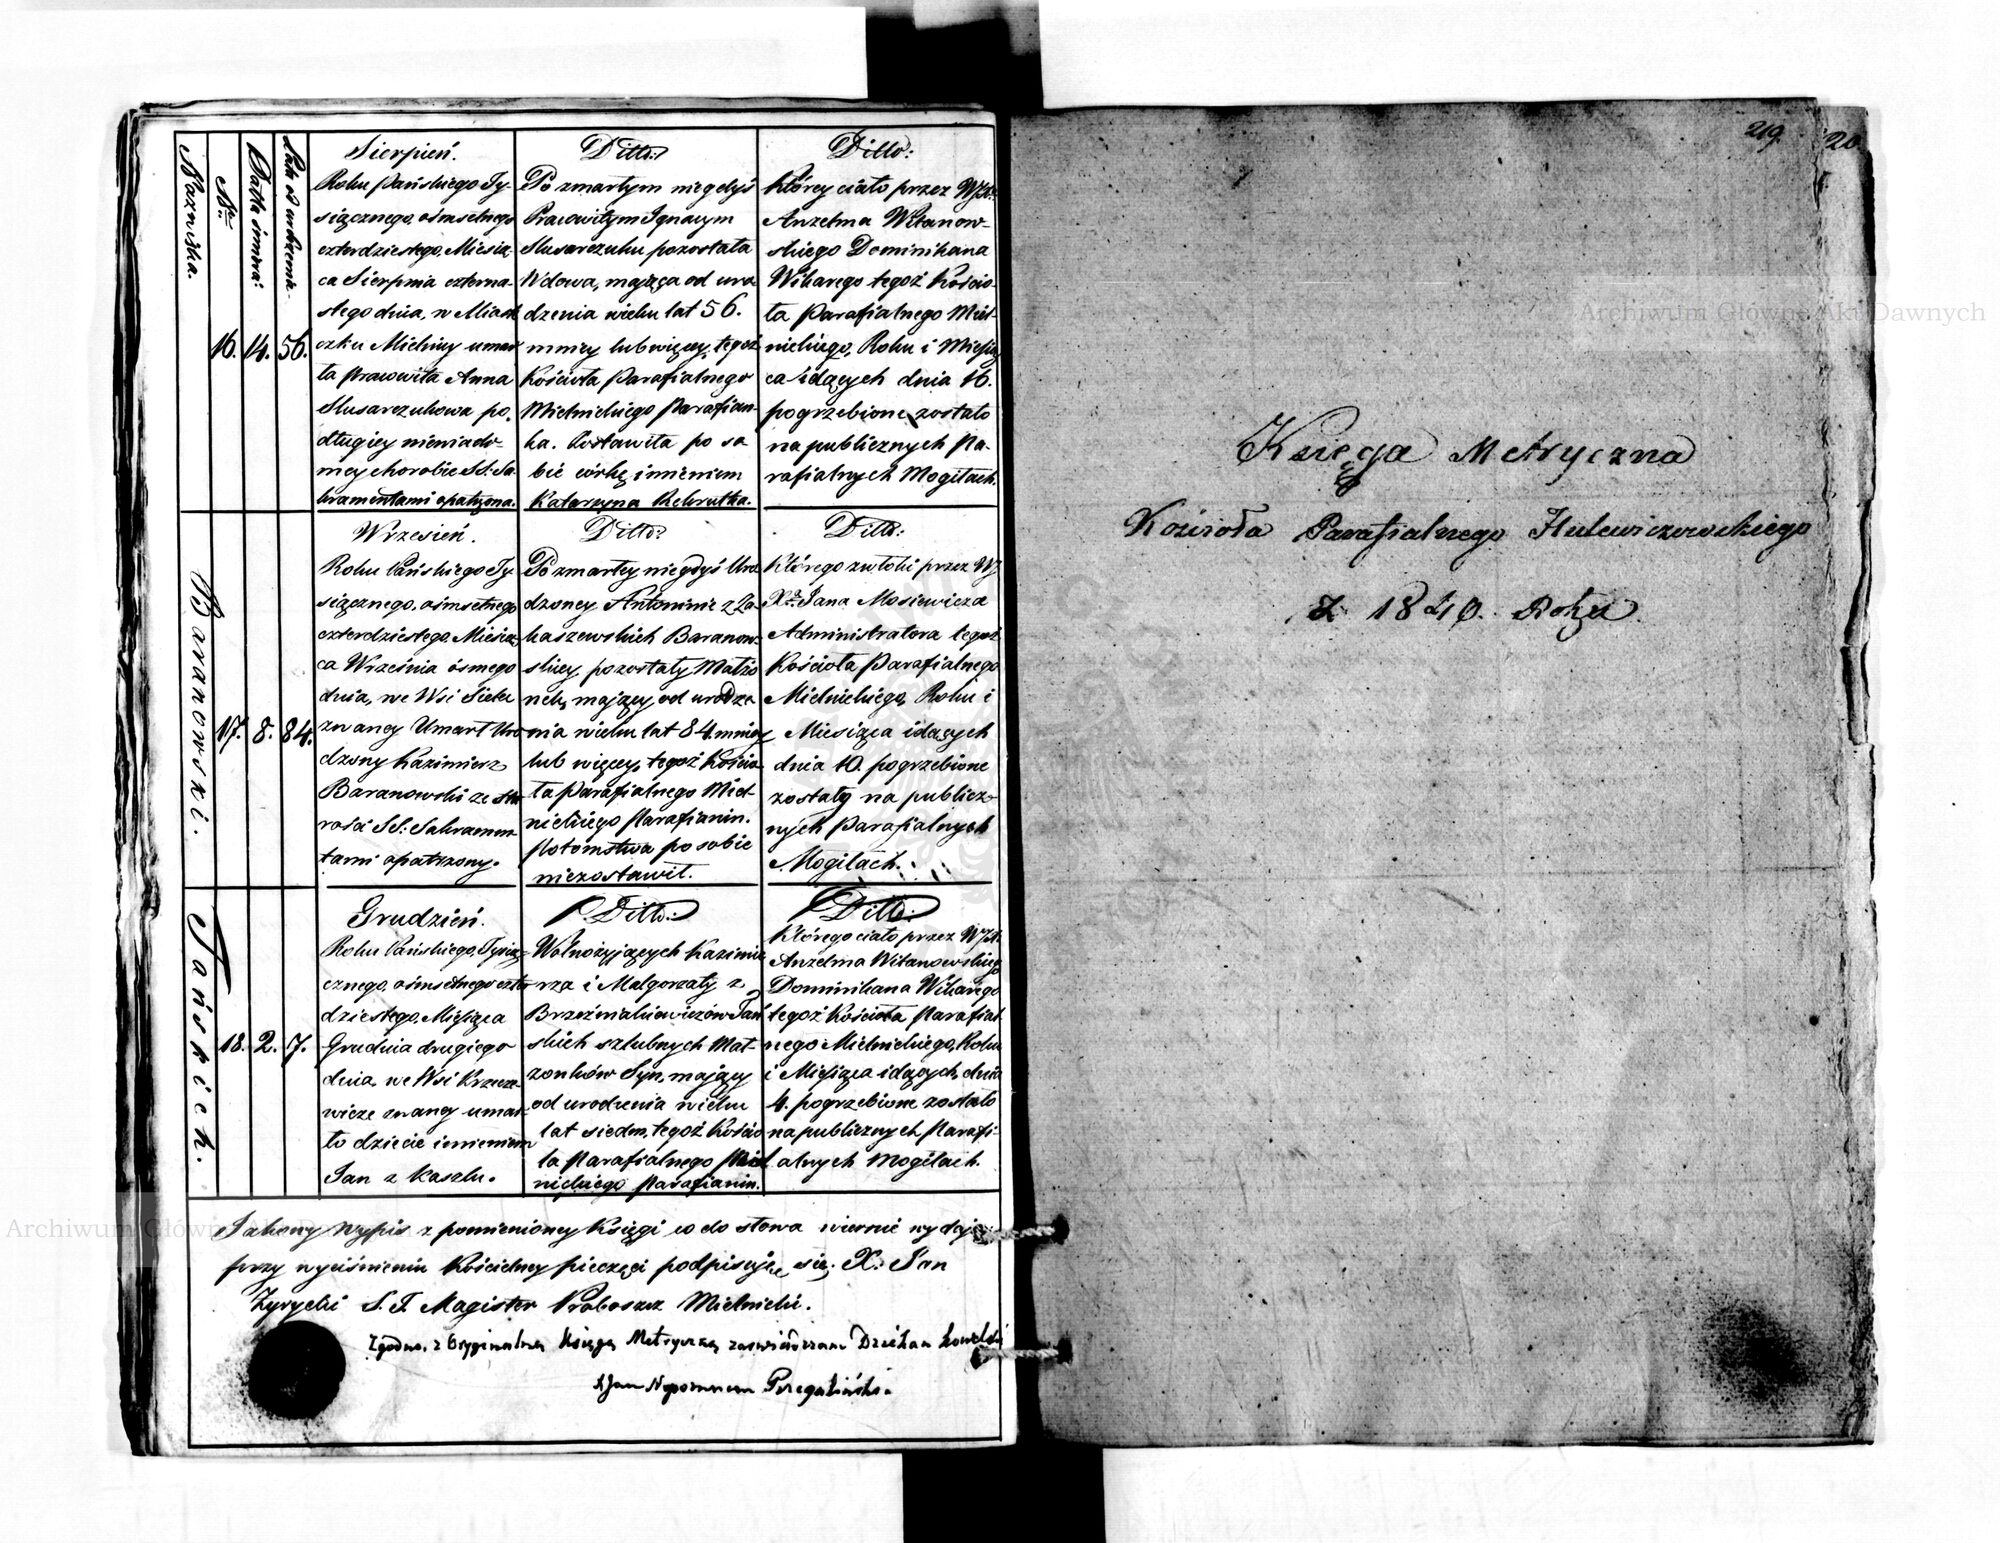 Nazwiska.
Nr.
Datta śmierci:
Lata od urodzenia.
Sierpień.
Roku Pańskiego Ty-
siącznego, ośmsetnego
czterdziestego, Miesią-
ca Sierpnia czterna-
stego dnia, w Miast
eczku Mielnicy umar
ła pracowita Anna
Slusarczukowa po
długiey niewiado-
mey chorobie SS: Sa-
kramentami opatrzona.
16.
14.
56.
Ditto:
Po zmartym niegdyś
Pracowitym Ignacym
Slusarczuku pozostała
Wdowa, mająca od uro
dzenia wieku lat 56.
mniey lub więcey, tegoż
Kościoła Parafialnego
Mielnickiego Parafian-
ka. Zostawiła po so
bie córkę imieniem
Katarzyna
Ditto:
Którey ciało przez WJX:
Anzelma Witanow-
skiego Dominikana
Wikarego tegoż Kościo-
ła Parafialnego Miel-
nickiego, Roku i Miesią
ca idących dnia 16.
pogrzebione zostało
na publicznych Pa-
rafialnych Mogiłach.
Baranowski.
17.
8.
84.
Wrzesień.
Roku Pańskiego Ty
siącznego, ośmsetnego
czterdziestego, Miesią
ca Września ósmego
dnia, we Wsi Siele
zwaney Umarł Uro
dzony Kazimierz
Baranowski ze sta
rości SS: Sakramen
tami opatrzony.
Ditto:
Po zmarłey niegdyś Uro
dzoney Antoninie z Za
kaszewskich Baranow
skiey pozostały Małżo
nek, mający od urodze
nia wieku lat 84. mniey
lub więcey, tegoż Kościo
ła Parafialnego Miel-
nickiego Parafianin.
Potomstwa po sobie
niezostawił.
Ditto:
Którego zwłoki przez WJ
Xa. Jana Mosiewicza
Administratora tegoż
Kościoła Parafialnego
Mielnickiego, Roku i
Miesiąca idących
dnia 10. pogrzebione
zostały na publicz-
nych Parafialnych
Mogiłach.
Tańskich.
18.
2.
7.
Grudzień.
Roku Pańskiego, Tysią
cznego, ośmsetnego czter
dziestego, Miesiąca
Grudnia drugiego
dnia, we Wsi Krzecze-
wicze zwaney umar-
ło dziecie imieniem
Jan z kaszlu.
Ditto:
Wolnożyjących Kazimie
rza i Małgorzaty z
Brzezinakiewiczów Tań
skich szlubnych Mał-
żonków Syn, mający
od urodzenia wieku
lat siedm, tegoż Kościo
ła Parafialnego Miel
nickiego Parafianin.
Ditto:
Którego ciało przez WJX
Anzelma Witanowskiego
Dominikana Wikarego
tegoż Kościoła Parafial
nego Mielnickiego, Roku
i Miesiąca idących, dnia
4. pogrzebione zostało
na publicznych Parafi-
alnych Mogiłach.
Takowy wypis z pomienioney Księgi co do słowa wiernie wydając
przy wyciśnieniu Kościelney pieczęci podpisuję się. X. Jan
Żyrycki S. T. Magister Proboszcz Mielnicki.
Zgodno. z Oryginalną Księgą Metryczną zaswiadczam Dziekan Kowelski
X Jan Nepomucen
219.
20
Księga Metryczna
Kościoła Parafialnego Hulewiczowskiego
Z 1840. Roku.
Archiwum Główne Akt Dawnych
Archiwum Główne Akt Dawnych